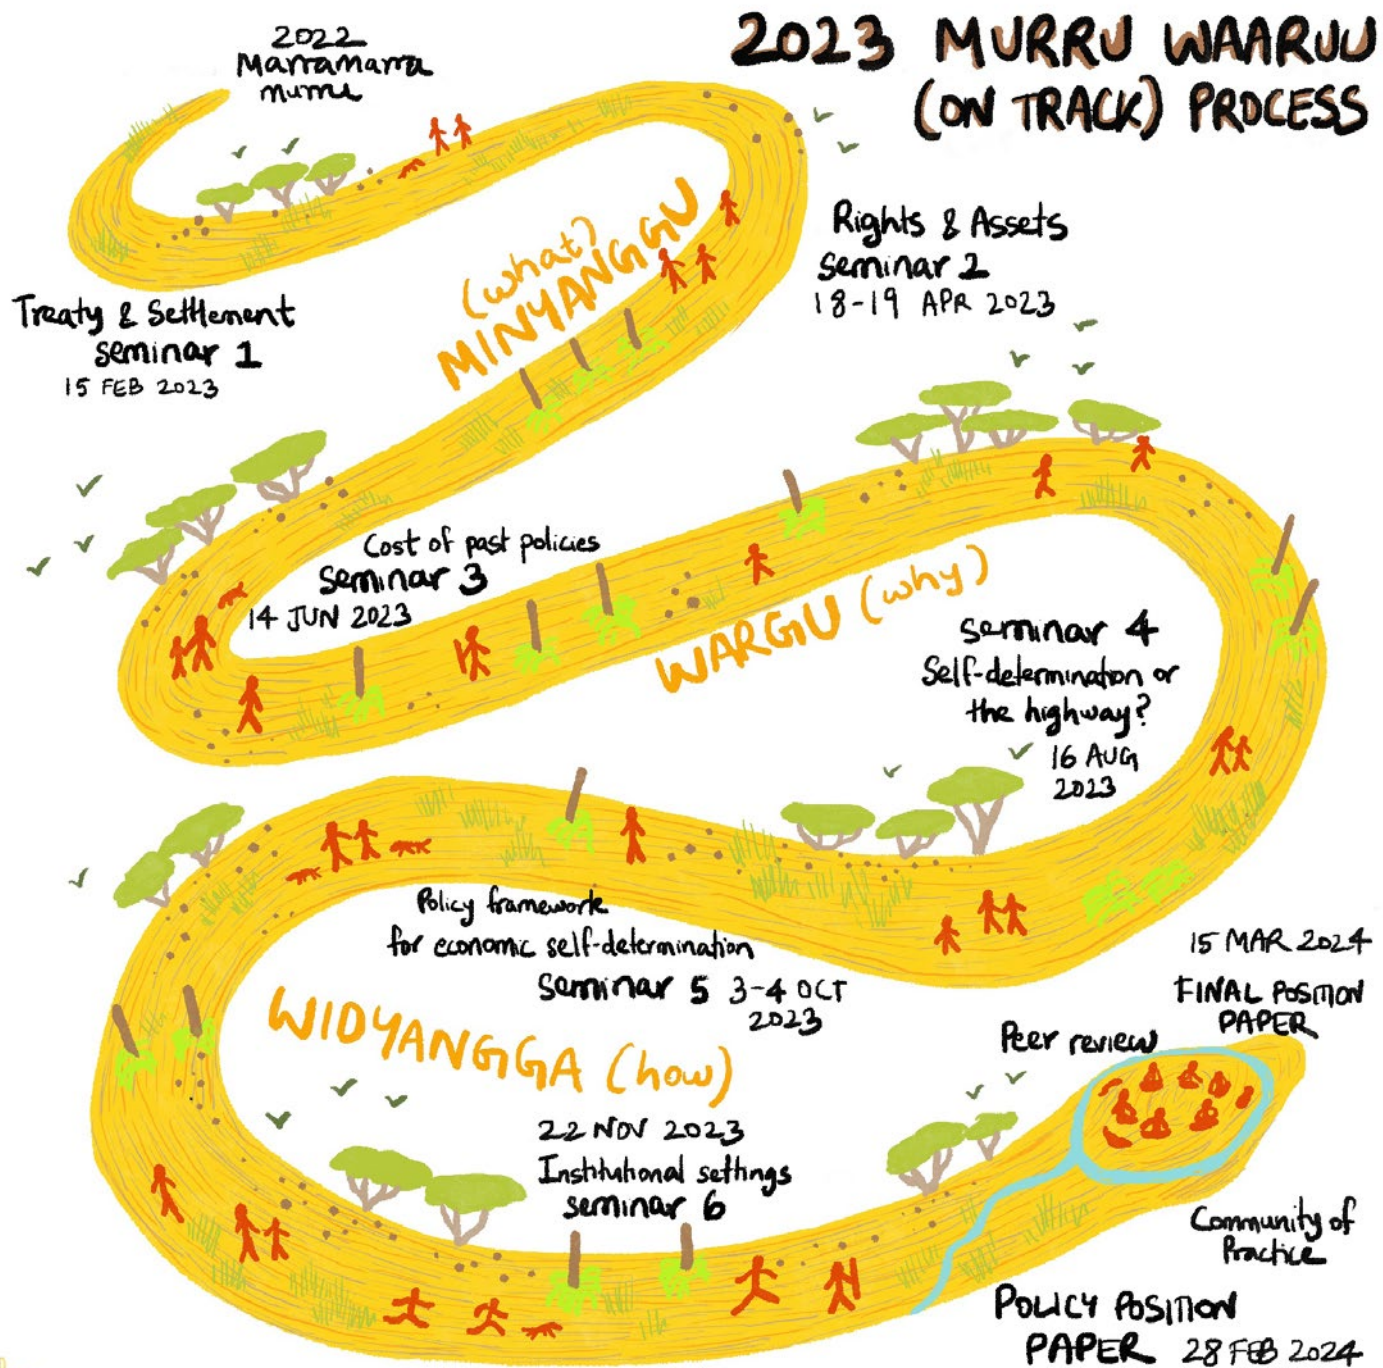 2023 MURRU WAARUU
(ON TRACK) PROCESS
2022
Marramarra
murru
Treaty & Settlement
seminar 1
15 FEB 2023
(what?)
MINYANGGU
Rights & Assets
seminar 2
18-19 APR 2023
Cost of past policies
seminar 3
14 JUN 2023
WARGU (why)
seminar 4
Self-determination or
the highway?
16 AUG
2023
Policy framework
for economic self-determination
seminar 5 3-4 OCT
2023
WIDYANGGA (how)
22 NOV 2023
Institutional settings
seminar 6
15 MAR 2024
FINAL POSITION
PAPER
Peer review
Community of
Practice
POLICY POSITION
PAPER 28 FEB 2024